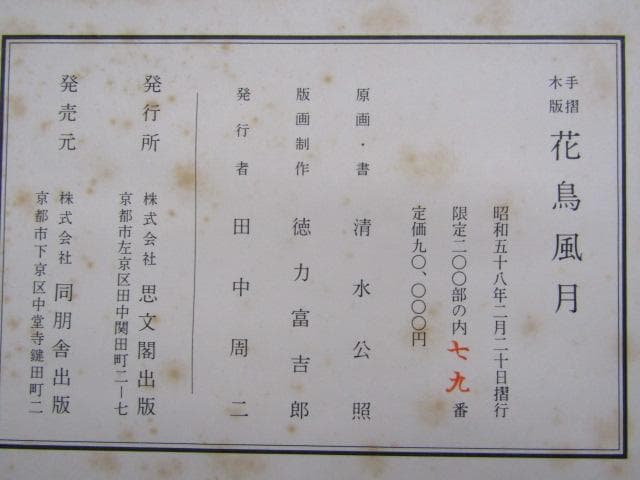 手摺木版 花鳥風月
昭和五十八年二月二十日摺行
限定二〇〇部の内七九番
定価九〇、〇〇〇円
原画・書 清水公照
版画制作 徳力富吉郎
発行者 田中周二
発行所 株式会社 思文閣出版
京都市左京区田中関田町二―七
発売元 株式会社 同朋舎出版
京都市下京区中堂寺鍵田町二